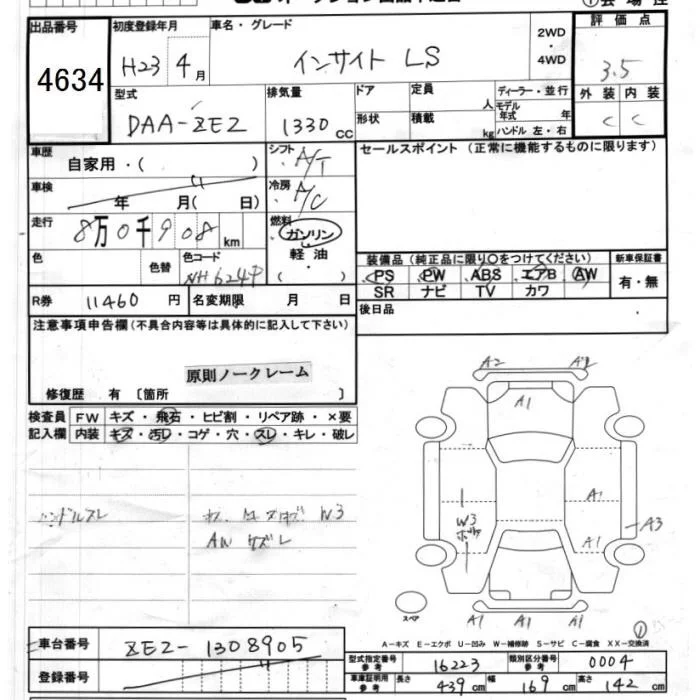 出品番号 初度登録年月 車名・グレード 2WD ・ 4WD 評価点
4634 H23 4月 インサイト LS 3.5
型式 排気量 ドア 定員 人 ディーラー・並行 外装 内装
DAA-ZE2 1330 cc 形状 積載 kg モデル年式 年 C C
ハンドル 左・右
車歴 自家用・( ) シフト A/T セールスポイント (正常に機能するものに限ります)
車検 年 月( 日) 冷房 A/C
走行 8万0千908km 燃料 ガソリン
軽油
・
( )
色 色替 色コード NH624P 装備品 (純正品に限り○をつけてください) 新車保証書
PS PW ABS エアB AW 有・無
SR ナビ TV カワ
R券 11460 円 名変期限 月 日 後日品
注意事項申告欄 (不具合内容等は具体的に記入して下さい)
原則ノークレーム
修復歴 有 〔箇所 〕
検査員 FW キズ・飛石・ヒビ割・リペア跡・×要
記入欄 内装 キズ・汚レ・コゲ・穴・スレ・キレ・破レ
ハンドルスレ W3
AW キズレ
A2 A2
A1
A1
W3 A3
A1
スペア A1 A1 A1
A-キズ E-エクボ U-凹み W-補修跡 S-サビ C-腐食 XX-交換済
車台番号 ZE2-1308905
登録番号
型式指定番号 参考 16223 類別区分番号 参考 0004
車庫証明用 参考 長さ 439cm 幅 169cm 高さ 142cm